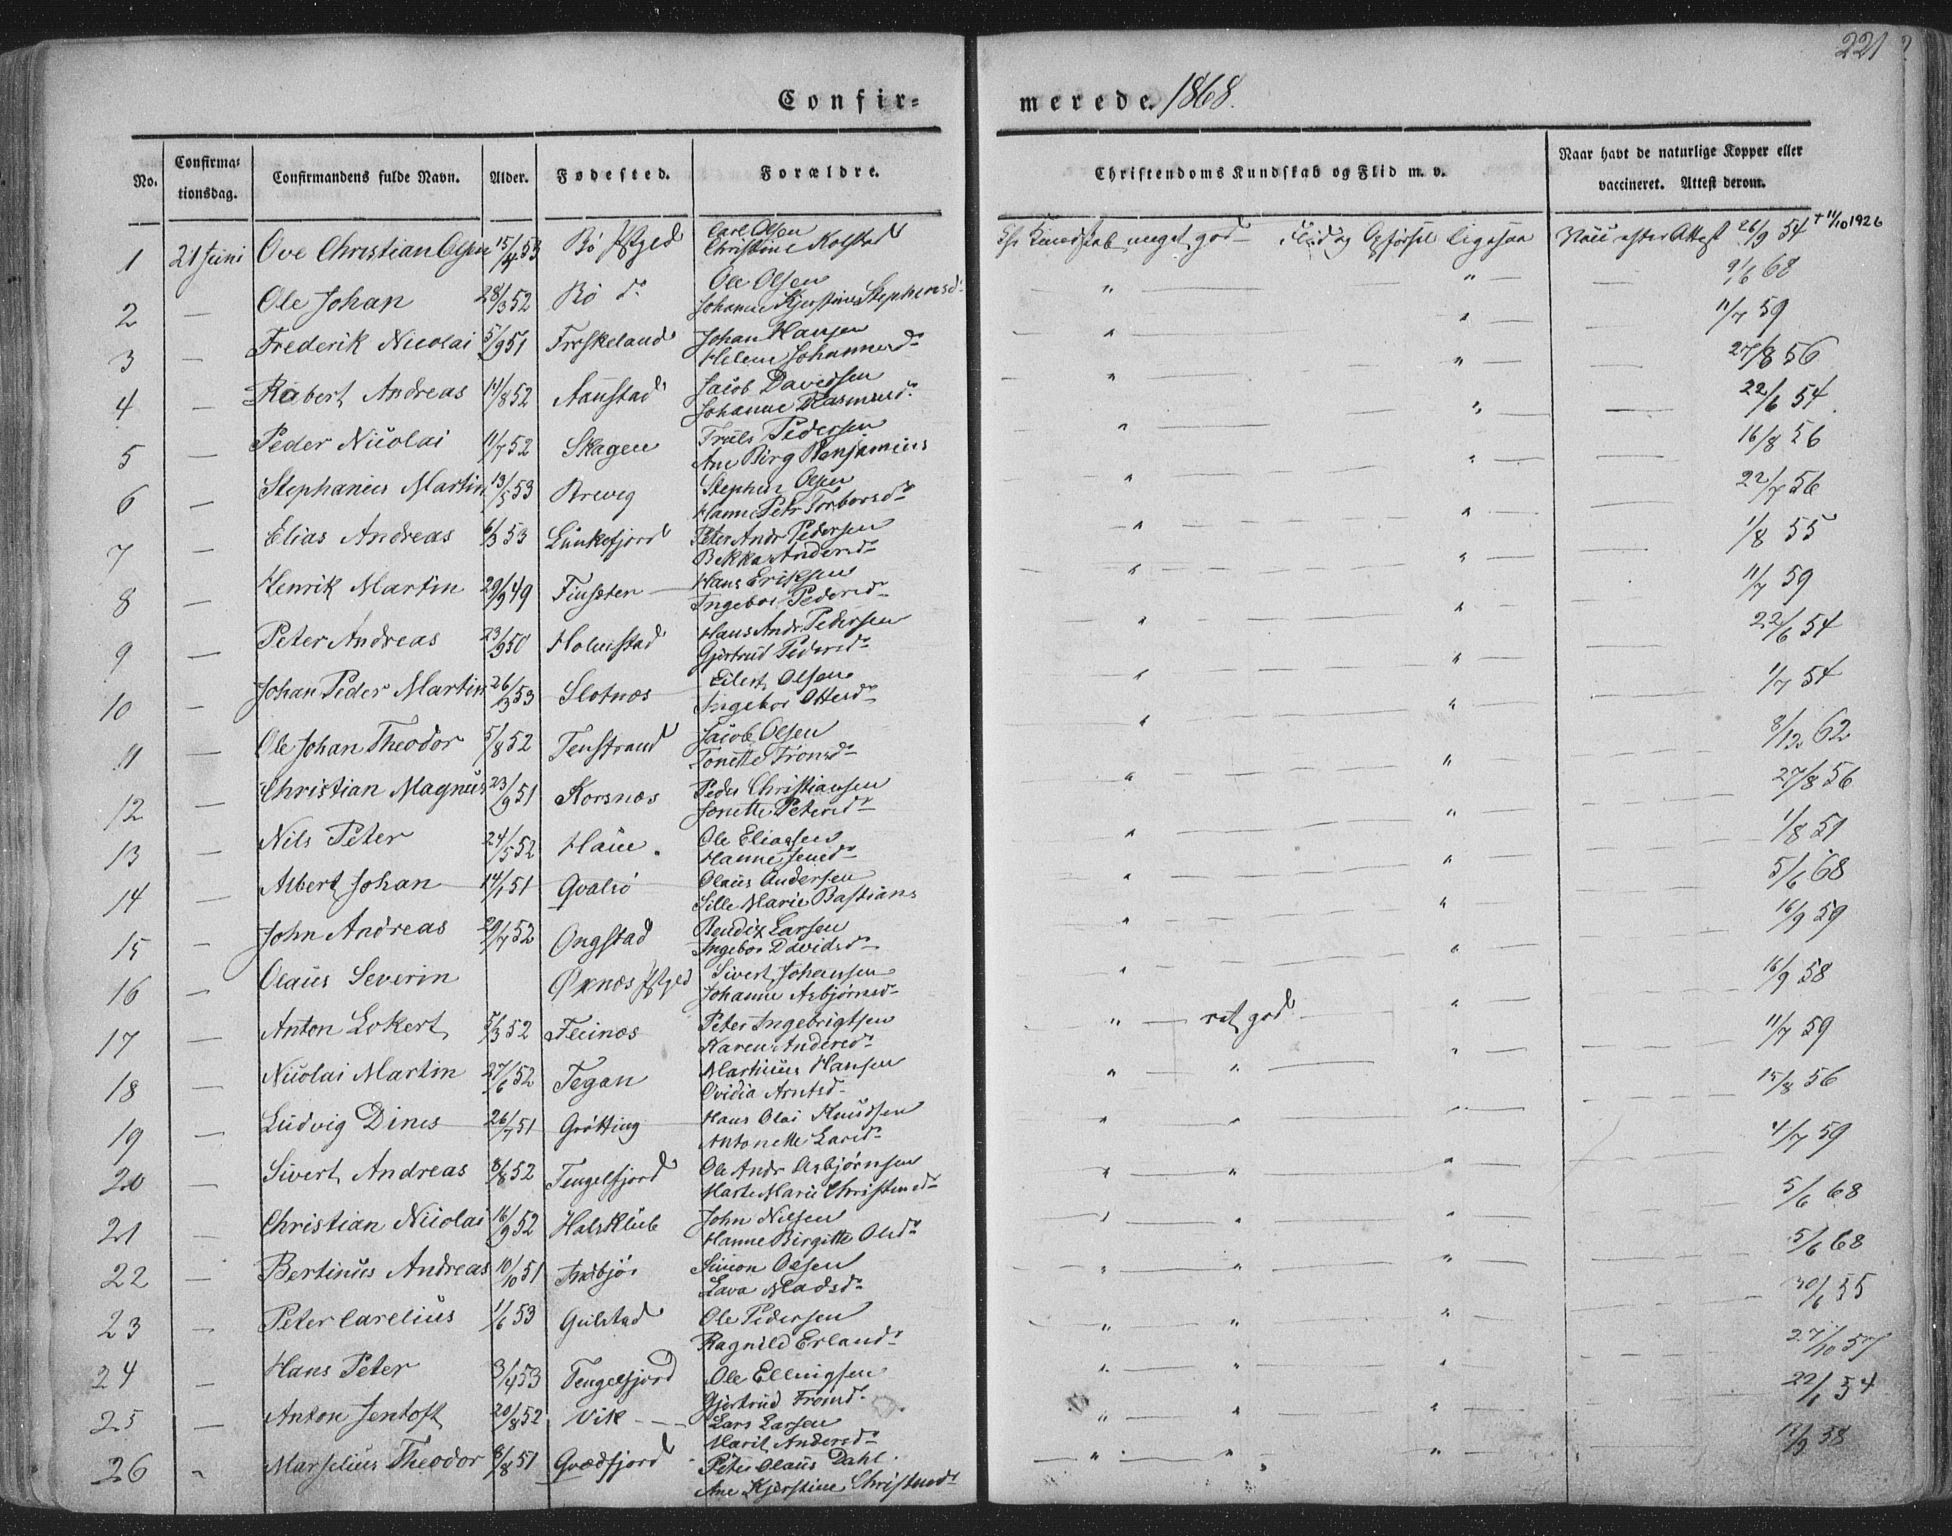 221
Confir=
merede. 1868.
No.
Confirma=
tionsdag.
Confirmandens fulde Navn.
Alder.
Fødested.
Forældre.
Christendoms Kundskab og Flid m. v.
Naar havt de naturlige Kopper eller
vaccineret. Attest derom.
1 21 Juni Ove Christian Olsen 15/4 53 Bø Pstgjld Carl Olsen
Christine Kolstad
Kundskab meget god Flid og Opførsel ligesaa efter Attest 26/9 54 + 11/10 1926
2 — Ole Johan 28/3 52 Bø do Ole Olsen
Johanne Kjerstine Stephensd. 9/6 68
3 — Frederik Nicolai 5/9 51 Froskeland Johan Hansen
Helene Johannesd. 11/7 59
4 — Robert Andreas 14/8 52 Aanstad Jacob Davidsen
Johanne Rasmusd. 27/8 56
5 — Peder Nicolai 11/7 52 Skagen Truls Pedersen
Ane Birg Benjamins 22/6 54
6 — Stephanus Martin 13/5 53 Breveg Stephen Olsen
Hanne Petr Torborsd. 16/8 56
7 — Elias Andreas 6/3 53 Lunkefjord Peter Andr Pedersen
Bekka Andersd. 22/7 56
8 — Henrik Martin 29/9 49 Finsæter Hans Eriksen
Ingebor Pedersd. 1/8 55
9 — Peter Andreas 23/9 50 Holmstad Hans Andr Pedersen
Gjertrud Pedersd. 11/7 59
10 — Johan Peder Martin 26/3 53 Slotnæs Eilert Olsen
Ingebor Ottersd. 22/6 54
11 — Ole Johan Theodor 5/8 52 Tenstrand Jacob Olsen
Tonette Tronsd. 1/7 54
12 — Christian Magnus 23/9 51 Korsnæs Peder Christiansen
Jonette Petersd. 8/12 62
13 — Nils Peter 24/5 52 Haue Ole Eliassen
Hanne Jensd. 27/8 56
14 — Albert Johan 14/1 51 Gvalsø Olaus Andersen
Sille Marie Bastians 1/8 51
15 — John Andreas 29/7 52 Ongstad Bendix Larsen
Ingebor Davidsd. 5/6 68
16 — Olaus Severin Øxnæs Pstgjld Sivert Johansen
Johanne Asbjørnsd. 16/9 59
17 — Anton Lokert 5/3 52 Fleinæs Peter Ingebrigtsen
Karen Andersd. ret god 16/9 58
18 — Nicolai Martin 27/6 52 Tegan Martinus Hansen
Ovidia Arntsd. 11/7 59
19 — Ludvig Dines 26/7 51 Grøtting Hans Olai Knudsen
Antonette Larsd. 15/8 56
20 — Sivert Andreas 8/8 52 Tengelfjord Ole Andr Asbjørnsen
Marte Marie Christensd. 4/7 59
21 — Christian Nicolai 16/9 52 Halsklub John Nilsen
Hanne Birgitte Olsd. 5/6 68
22 — Bertinus Andreas 10/10 51 Indbjør Simon Olsen
Lava Madsd. 5/6 68
23 — Peter Carelius 1/6 53 Gulstad Ole Pedersen
Ragnild Erlands 30/6 55
24 — Hans Peter 3/4 53 Tengelfjord Ole Ellingsen
Gjertrud Tronsd. 27/10 57
25 — Anton Jentoft 20/8 52 Vik Lars Larsen
Marit Andersd. 22/6 54
26 Marselius Theodor 8/8 51 Gvædfjord Peter Olaus Dahl
Ane Kjerstine Christensd. 17/9 58